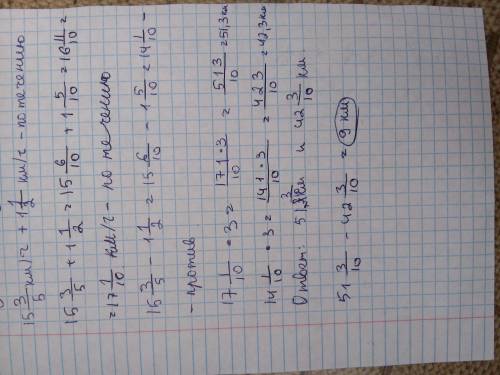 15 3/5 км/ч + 1 1/2 км/ч - по течению
15 3/5 + 1 1/2 = 15 6/10 + 1 5/10 = 16 11/10 =
= 17 1/10 км/ч - по течению
15 3/5 - 1 1/2 = 15 6/10 - 1 5/10 = 14 1/10 -
- против
17 1/10 · 3 = 171·3/10 = 513/10 = 51,3 км
14 1/10 · 3 = 141·3/10 = 423/10 = 42,3 км
Ответ: 51 3/10 км и 42 3/10 км.
51 3/10 - 42 3/10 = 9 км